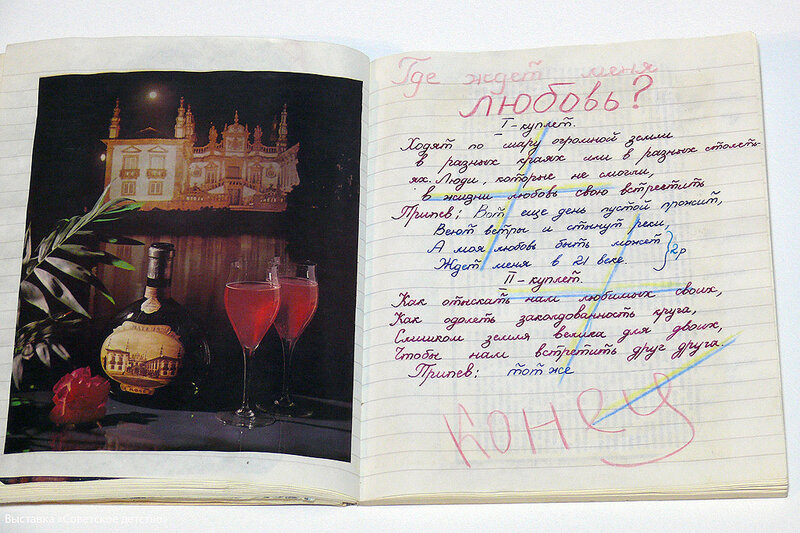 MATEUS
Где ждет меня
любовь?
I-куплет.
Ходят по шару огромной земли
в разных краях или в разных столеть-
ях. Люди, которые не смогли,
в жизни любовь свою встретить
Припев: Вот еще день пустой прожит,
Веют ветры и стынут реки,
А моя любовь быть может
Ждет меня в 21 веке. 2р
II-куплет.
Как отыскать нам любимых своих,
Как одолеть заколдованность круга,
Слишком земля велика для двоих,
Чтобы нам встретить друг друга.
Припев: тот же
конец
Выставка «Советское детство»